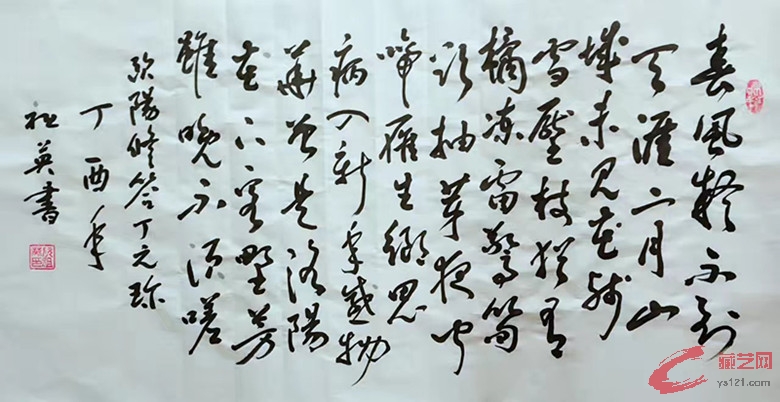 春風疑不到
天涯二月山
城未見花殘
雪壓枝猶有
橘凍雷驚筍
欲抽芽夜聞
啼雁生鄉思
病入新年感物
華曾是洛陽
花下客野芳
雖晚不須嗟
歐陽修答丁元珍
丁酉年
英書
藏艺网
ys121.com